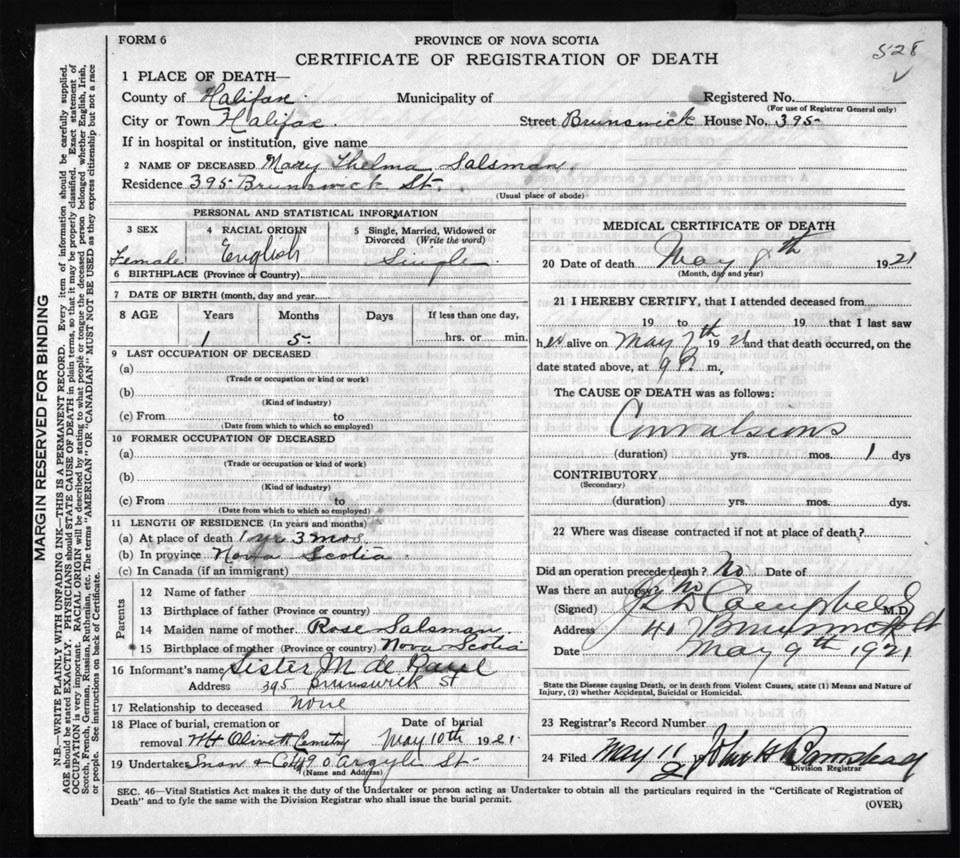 FORM 6
PROVINCE OF NOVA SCOTIA
CERTIFICATE OF REGISTRATION OF DEATH
528
MARGIN RESERVED FOR BINDING
N.B.—WRITE PLAINLY WITH UNFADING INK—THIS IS A PERMANENT RECORD. Every item of information should be carefully supplied.
AGE should be stated EXACTLY. PHYSICIANS should STATE CAUSE OF DEATH in plain terms, so that it may be properly classified. Exact statement of
OCCUPATION is very important. RACIAL ORIGIN will be described by stating to what people or tongue the deceased person belonged whether English, Irish,
Scotch, French, German, Russian, Ruthenian, etc. The terms "AMERICAN" OR "CANADIAN" MUST NOT BE USED as they express citizenship but not a race
or people. See instructions on back of Certificate.
1 PLACE OF DEATH—
County of Halifax Municipality of Registered No.
(For use of Registrar General only)
City or Town Halifax Street Brunswick House No. 395
If in hospital or institution, give name
2 NAME OF DECEASED Mary Thelma Salsman
Residence 395 Brunswick St.
(Usual place of abode)
PERSONAL AND STATISTICAL INFORMATION
3 SEX 4 RACIAL ORIGIN 5 Single, Married, Widowed or
Divorced (Write the word)
Female English Single
6 BIRTHPLACE (Province or Country)
7 DATE OF BIRTH (month, day and year)
8 AGE Years Months Days If less than one day,
1 5 hrs. or min.
9 LAST OCCUPATION OF DECEASED
(a)
(Trade or occupation or kind or work)
(b)
(Kind of industry)
(c) From to
(Date from which to which so employed)
10 FORMER OCCUPATION OF DECEASED
(a)
(Trade or occupation or kind of work)
(b)
(Kind of industry)
(c) From to
(Date from which to which so employed)
11 LENGTH OF RESIDENCE (In years and months)
(a) At place of death 1 yr 3 mos.
(b) In province Nova Scotia
(c) In Canada (if an immigrant)
Parents
12 Name of father
13 Birthplace of father (Province or country)
14 Maiden name of mother Rose Salsman
15 Birthplace of mother (Province or country) Nova Scotia
16 Informant's name Sister M de Paul
Address 395 Brunswick St
17 Relationship to deceased none
18 Place of burial, cremation or Date of burial
removal Mt Olivett Cemetry May 10th 1921
19 Undertaker Snow & Co 90 Argyle St
(Name and Address)
MEDICAL CERTIFICATE OF DEATH
20 Date of death May 8th 1921
(Month, day and year)
21 I HEREBY CERTIFY, that I attended deceased from
19 to 19 that I last saw
her alive on May 7th 1921 and that death occurred, on the
date stated above, at 9 P. m.
The CAUSE OF DEATH was as follows:
Convulsions
(duration) yrs. mos. 1 dys
CONTRIBUTORY
(Secondary)
(duration) yrs. mos. dys.
22 Where was disease contracted if not at place of death?
Did an operation precede death? No Date of
Was there an autopsy? No
(Signed) Campbell M.D.
Address 41 Brunswick St
Date May 9th 1921
State the Disease causing Death, or in death from Violent Causes, state (1) Means and Nature of
Injury, (2) whether Accidental, Suicidal or Homicidal.
23 Registrar's Record Number
24 Filed May 11 21 John H
Division Registrar
SEC. 46—Vital Statistics Act makes it the duty of the Undertaker or person acting as Undertaker to obtain all the particulars required in the "Certificate of Registration of
Death" and to fyle the same with the Division Registrar who shall issue the burial permit.
(OVER)